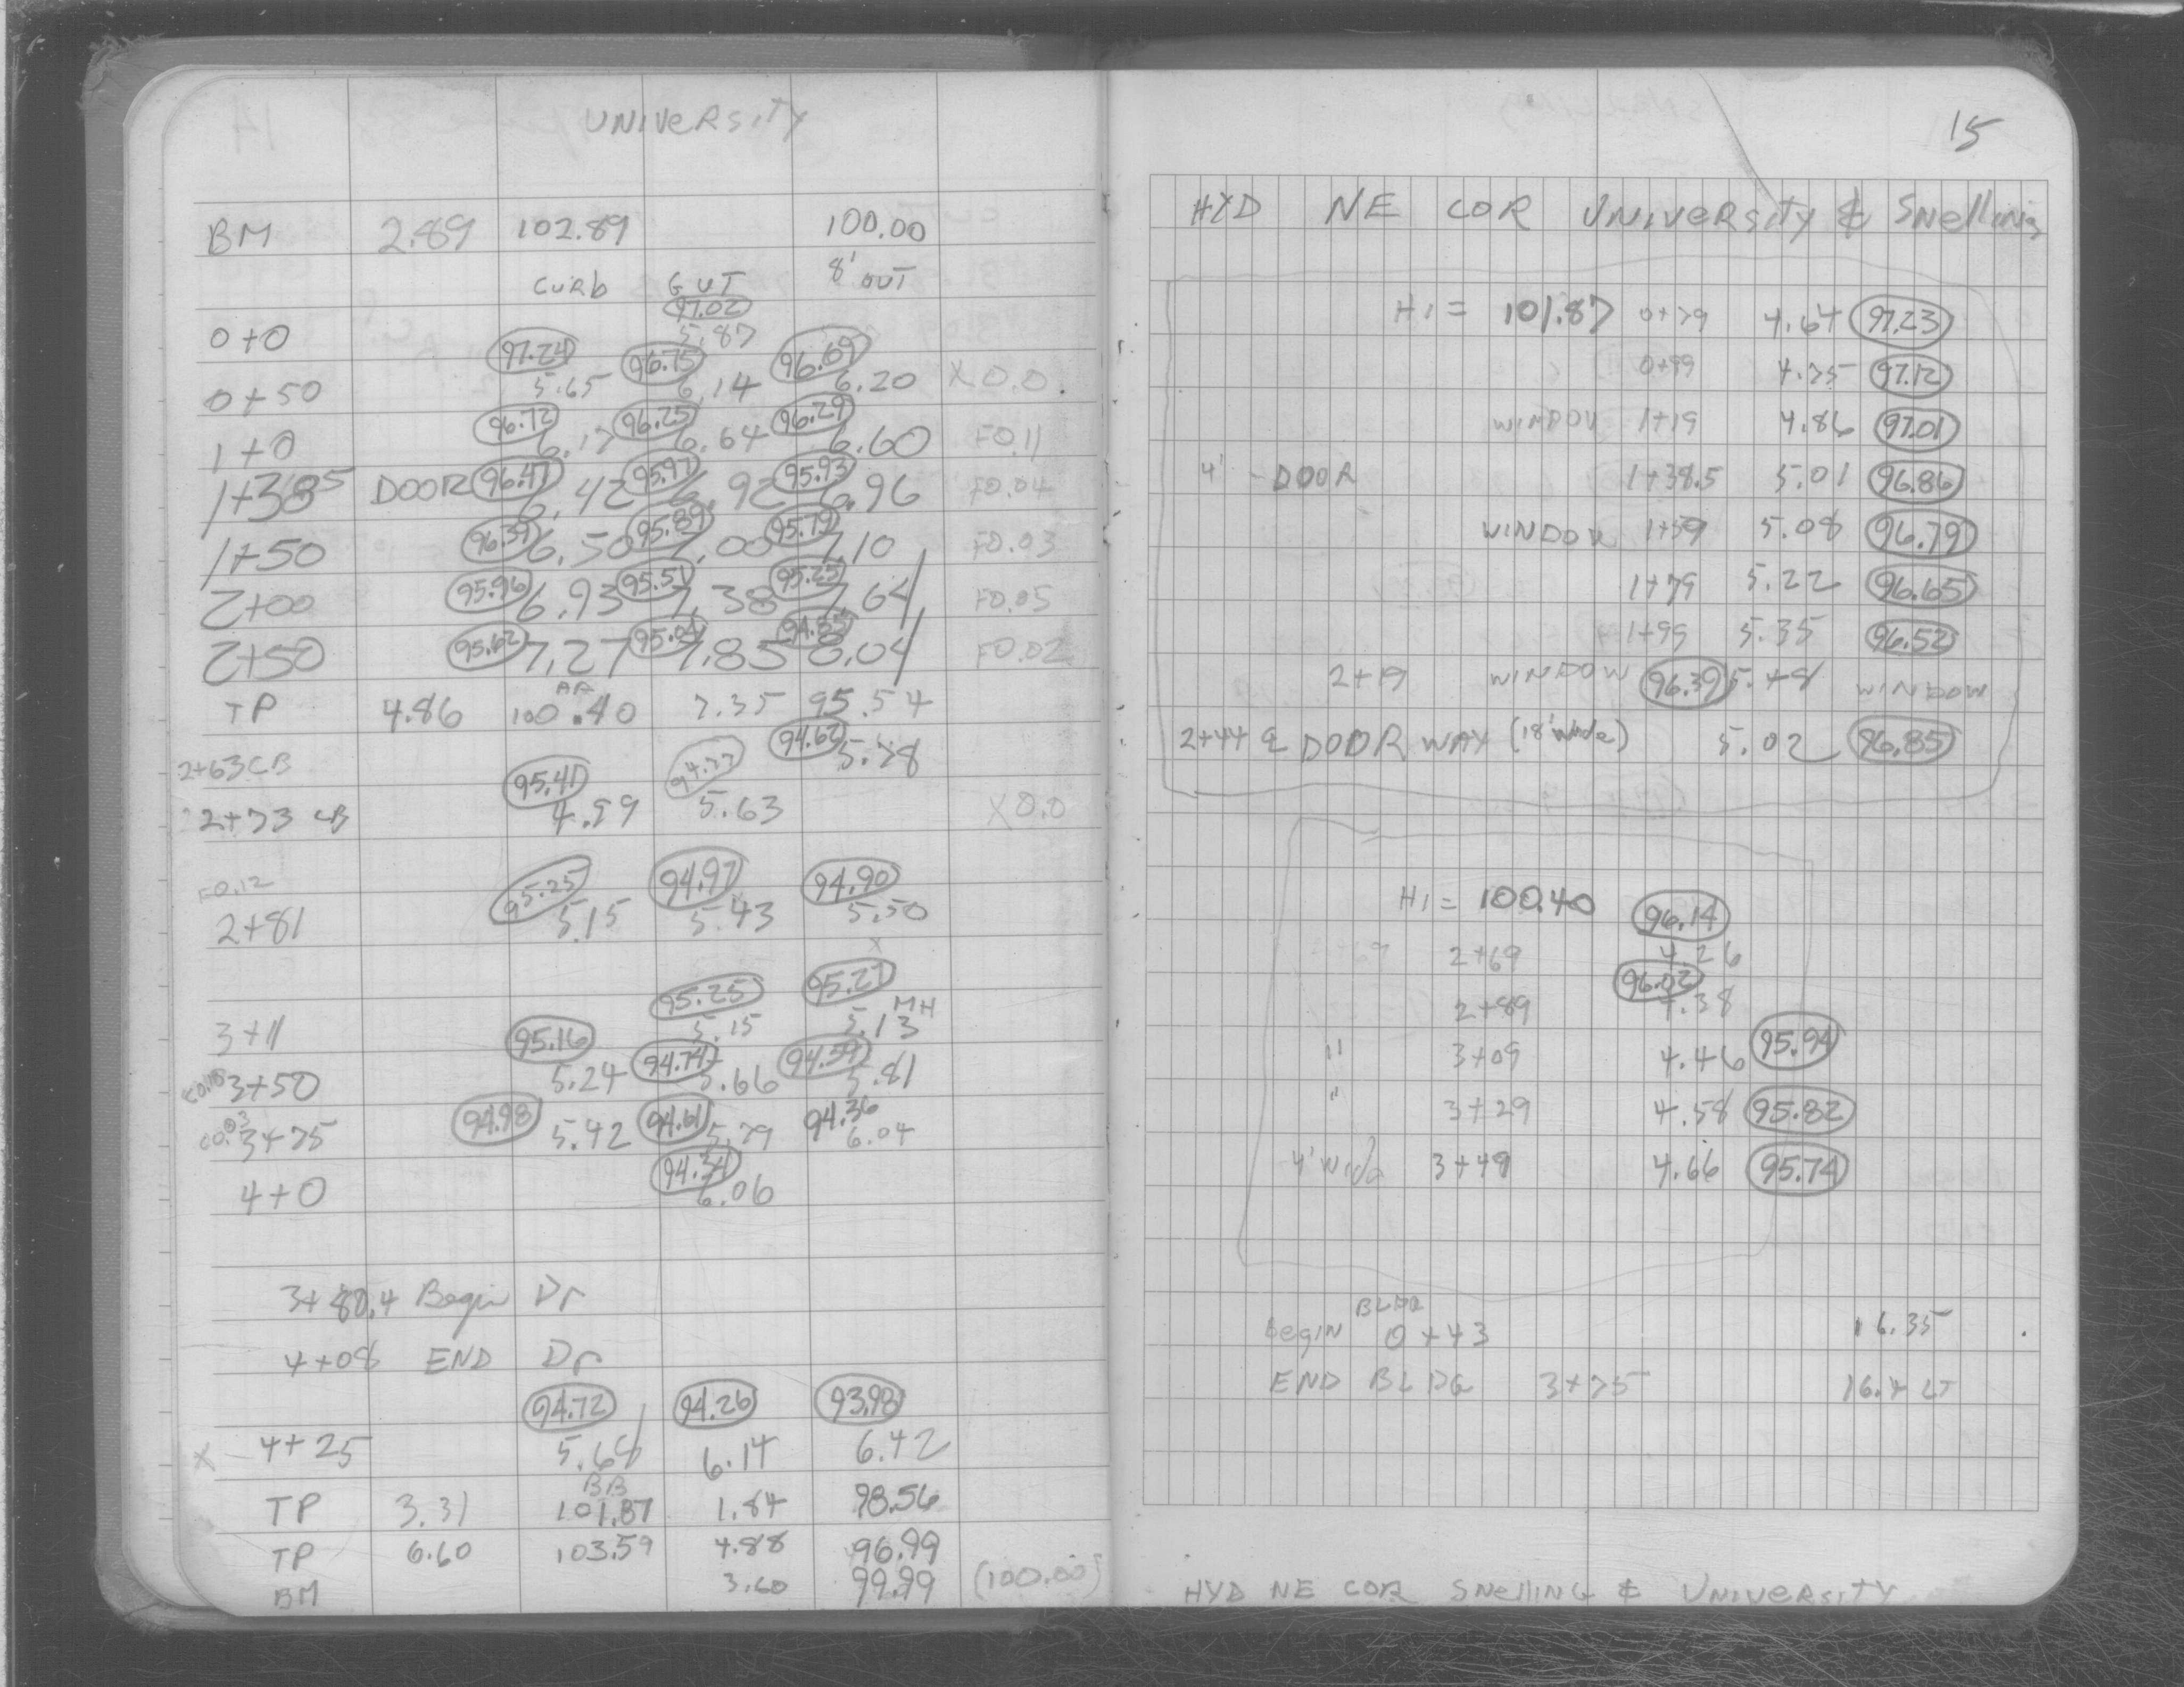 UNIVERSITY
BM 2.89 102.89 100.00
CURB GUT 8' OUT
97.02
0+0 5.87
97.24 96.75 96.69
0+50 5.65 6.14 6.20 X0.0
96.72 96.25 96.29
1+0 6.17 6.64 6.60 F0.11
96.47 95.97 95.93
1+38.5 DOOR 6.42 6.92 6.96 F0.04
96.39 95.89 95.79
1+50 6.50 7.00 7.10 F0.03
95.96 95.51 95.25
2+00 6.93 7.38 7.64 F0.05
95.62 95.04 94.85
2+50 7.27 7.85 8.04 F0.02
AA
TP 4.86 100.40 7.35 95.54
94.62
2+63 CB 5.78
95.41 94.77
2+73 CB 4.99 5.63 X0.0
F0.12 95.25 94.97 94.90
2+81 5.15 5.43 5.50
X
95.25 95.27
MH
3+11 5.15 5.13
95.16 94.74 94.59
3+50 5.24 5.66 5.81
94.98 94.61 94.36
C0.03 3+75 5.42 5.79 6.04
94.34
4+0 6.06
3+80.4 Begin Dr
4+08 END Dr
94.72 94.26 93.98
X 4+25 5.68 6.14 6.42
BB
TP 3.31 101.87 1.84 98.56
TP 6.60 103.59 4.88 96.99
BM 3.60 99.99 (100.00)
15
HYD NE COR UNIVERSITY & Snelling
HI = 101.87 0+79 4.64 97.23
0+99 4.75 97.12
WINDOW 1+19 4.86 97.01
4' - DOOR 1+38.5 5.01 96.86
WINDOW 1+59 5.08 96.79
1+79 5.22 96.65
1+99 5.35 96.52
2+19 WINDOW 96.39 5.48 WINDOW
2+44 ℄ DOORWAY (18' wide) 5.02 96.85
HI = 100.40 96.14
2+69 4.26
96.02
2+89 4.38
" 3+09 4.46 95.94
" 3+29 4.58 95.82
4' Wide 3+49 4.66 95.74
BLDG
Begin 0+43 16.35
END BLDG 3+75 16.4 LT
HYD NE COR SNelliNG & UNIVERSITY